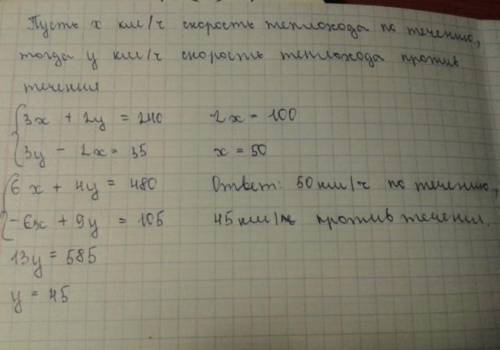 Пусть x км/ч скорость теплохода по течению,
тогда y км/ч скорость теплохода против
течения
3x + 2y = 240
3y - 2x = 35
6x + 4y = 480
-6x + 9y = 105
13y = 585
y = 45
2x = 100
x = 50
Ответ: 50 км/ч по течению,
45 км/ч против течения.